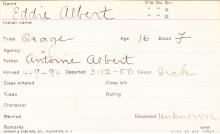 Name Eddie Albert File No. Ent.
" " D.
Indian name " " D.
Tribe Osage Age 16 Blood F
Agency
Father Antoine Albert
Arrived 4-9-94 Departed 3-12-00 Cause Sick
Class entered Class left
Trade Outing
Character
Married Deceased Unknown
Remarks